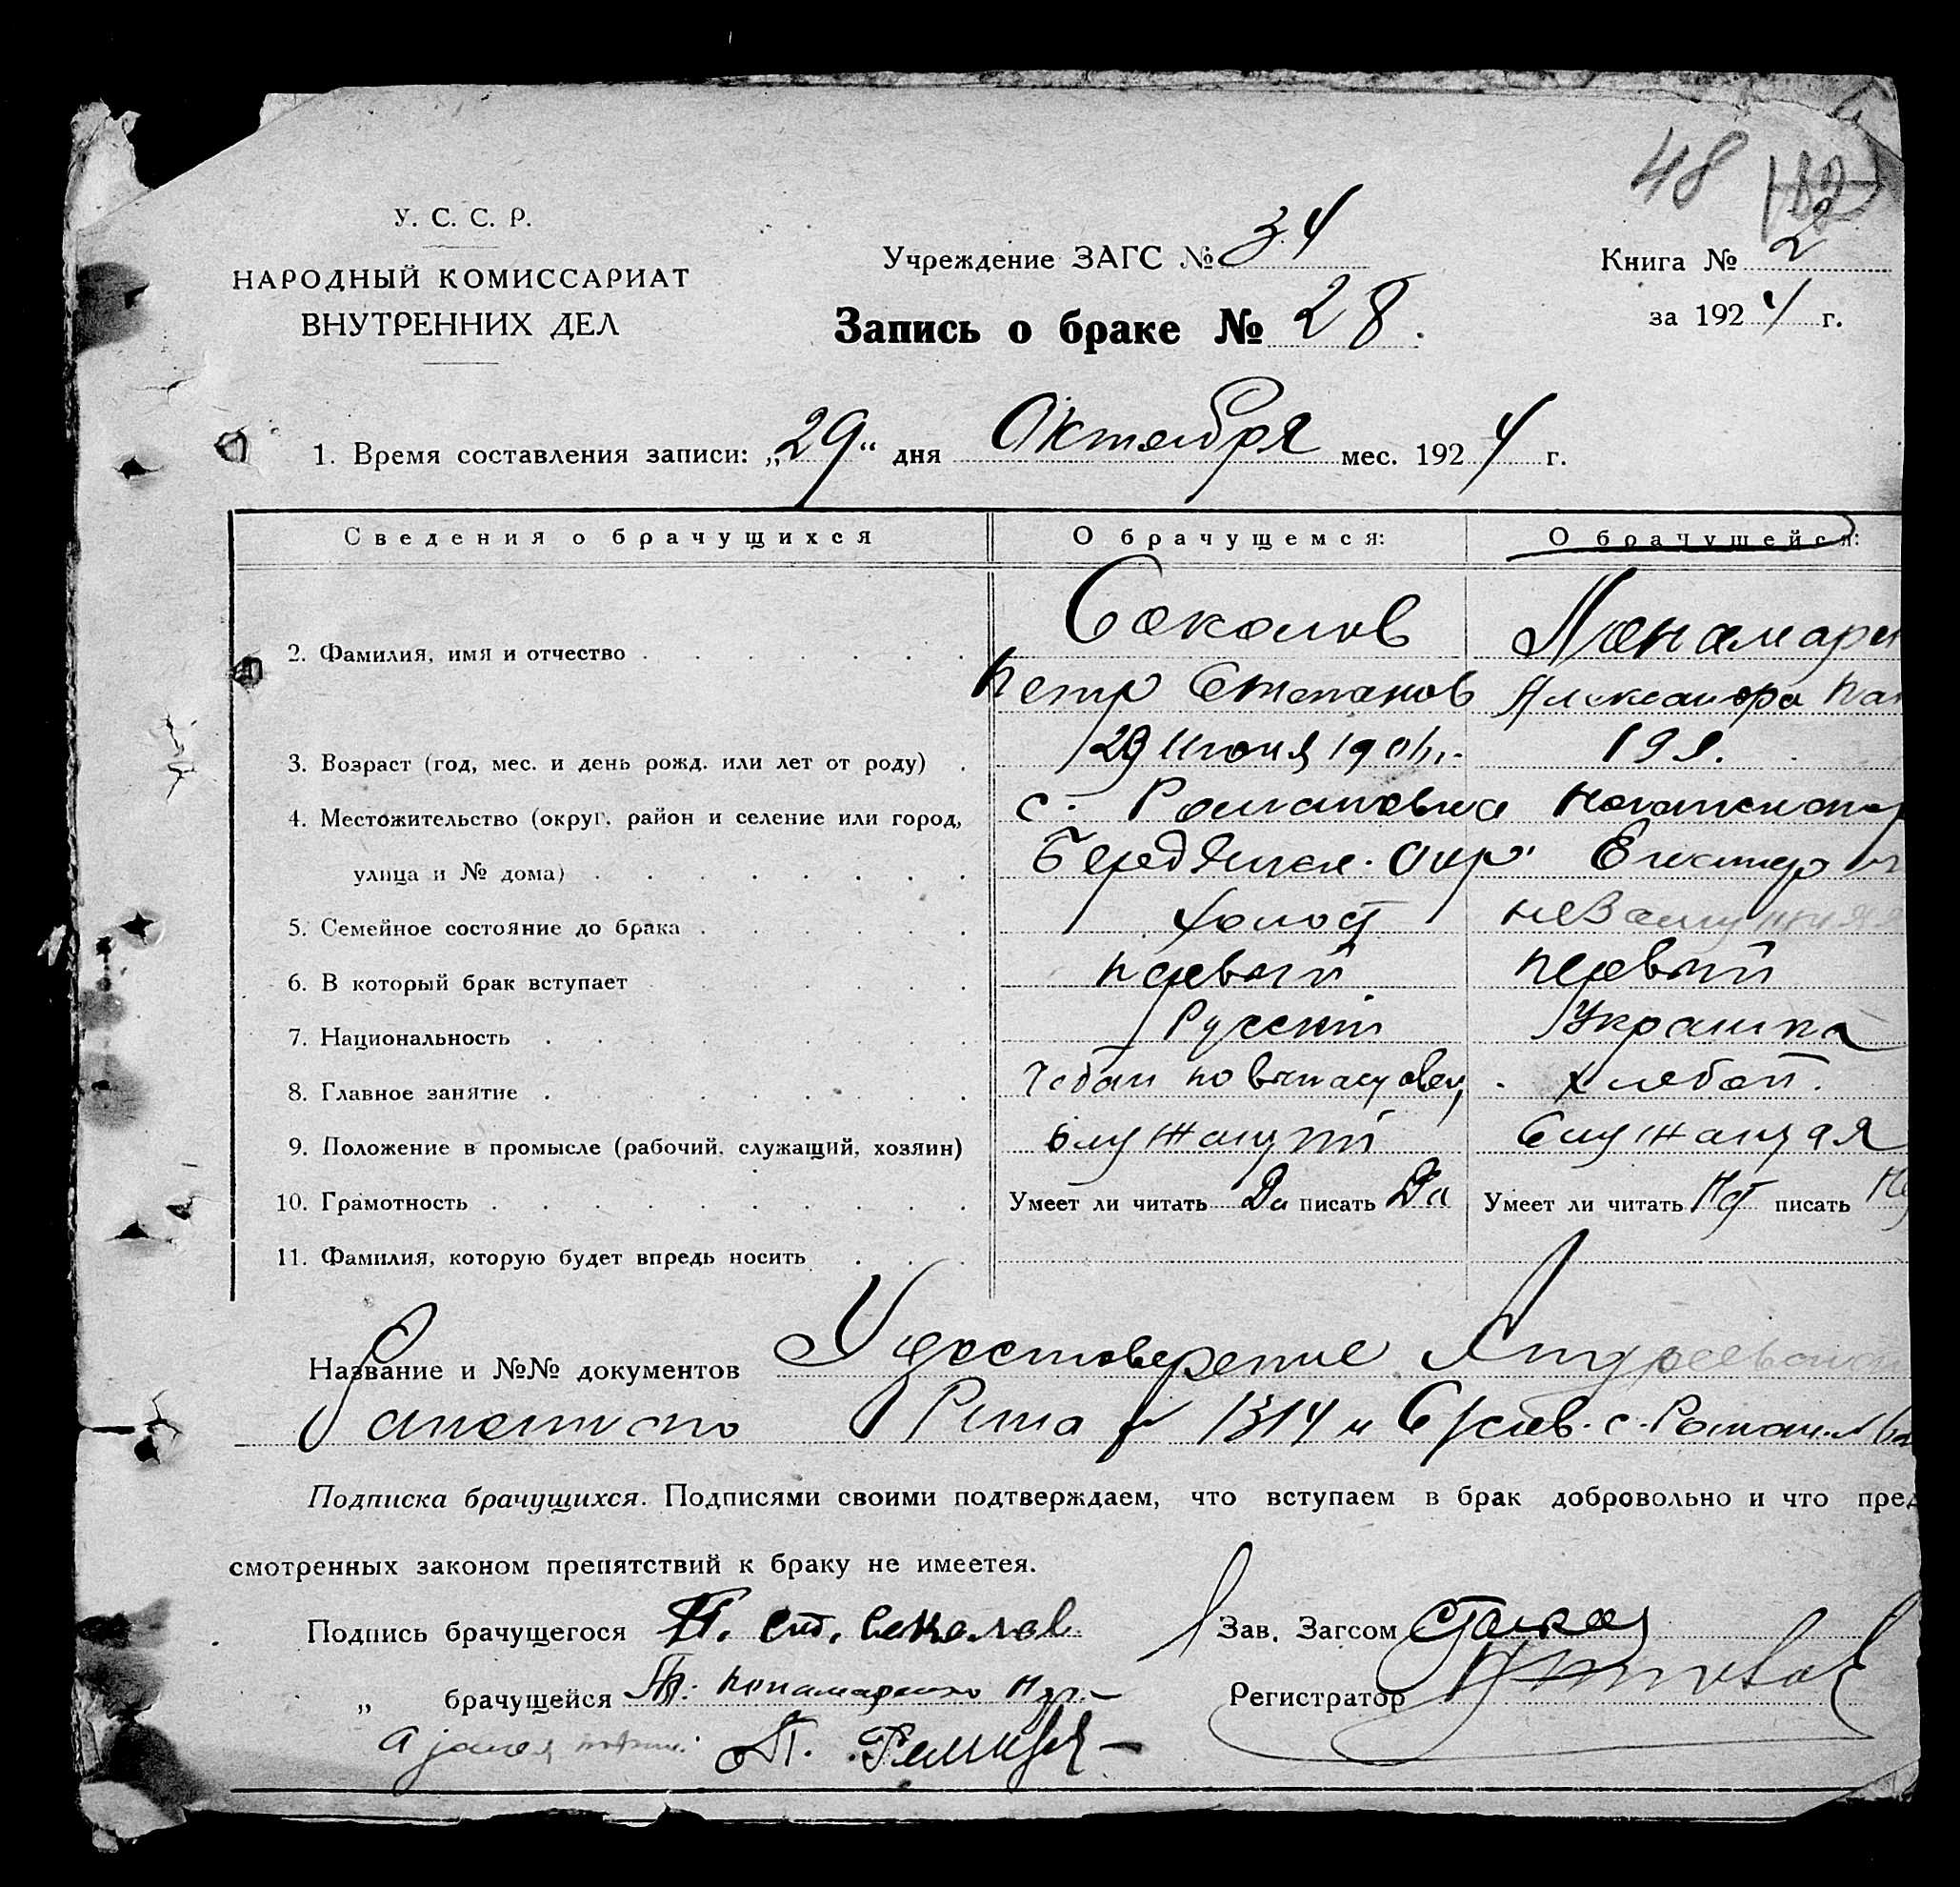 48 182
У. С. С. Р.
НАРОДНЫЙ КОМИССАРИАТ
ВНУТРЕННИХ ДЕЛ
Учреждение ЗАГС № 34
Книга № 2
Запись о браке № 28.
за 1924 г.
1. Время составления записи: „29“ дня Октября мес. 1924 г.
Сведения о брачущихся О брачущемся: О брачущейся:
2. Фамилия, имя и отчество Соколов
Петр Степанов Александра
3. Возраст (год, мес. и день рожд. или лет от роду) 29 Июня 19
4. Местожительство (округ, район и селение или город, с. Романовка
улица и № дома) Бердянск. Окр.
5. Семейное состояние до брака холост незамужняя
6. В который брак вступает первый первый
7. Национальность Русский Украинка
8. Главное занятие хлебоп.
9. Положение в промысле (рабочий, служащий, хозяин) служащий Служащая
10. Грамотность Умеет ли читать Да писать Да Умеет ли читать Нет писать
11. Фамилия, которую будет впредь носить
Название и №№ документов Удостоверение
1314 и с.
Подписка брачущихся. Подписями своими подтверждаем, что вступаем в брак добровольно и что пред
смотренных законом препятствий к браку не имеется.
Подпись брачущегося П. ст. Соколов Зав. Загсом
„ брачущейся Регистратор